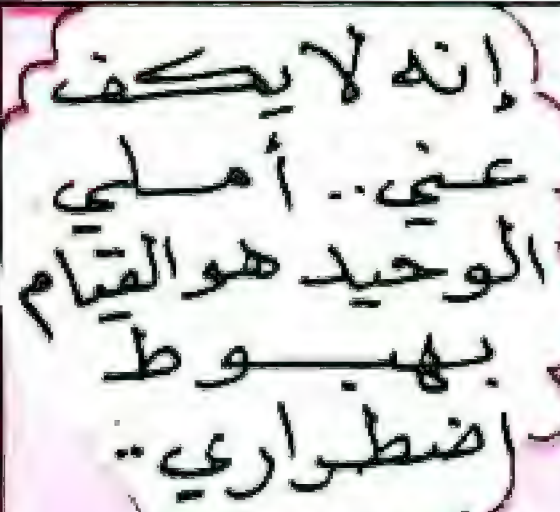 إنه لا يكف
عني.. أملي
الوحيد هو القيام
بهبوط
اضطراري..